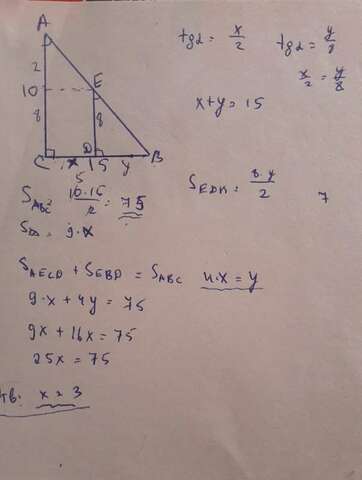 A
2
10
8
E
8
C x 15 D y B
5
tg α = x/2
tg α = y/8
x/2 = y/8
x + y = 15
S ABC = 10·15/2 = 75
S = 9·x
S EDK = 8·y/2
7
S AECD + S EBD = S ABC
4·x = y
9·x + 4y = 75
9x + 16x = 75
25x = 75
x = 3